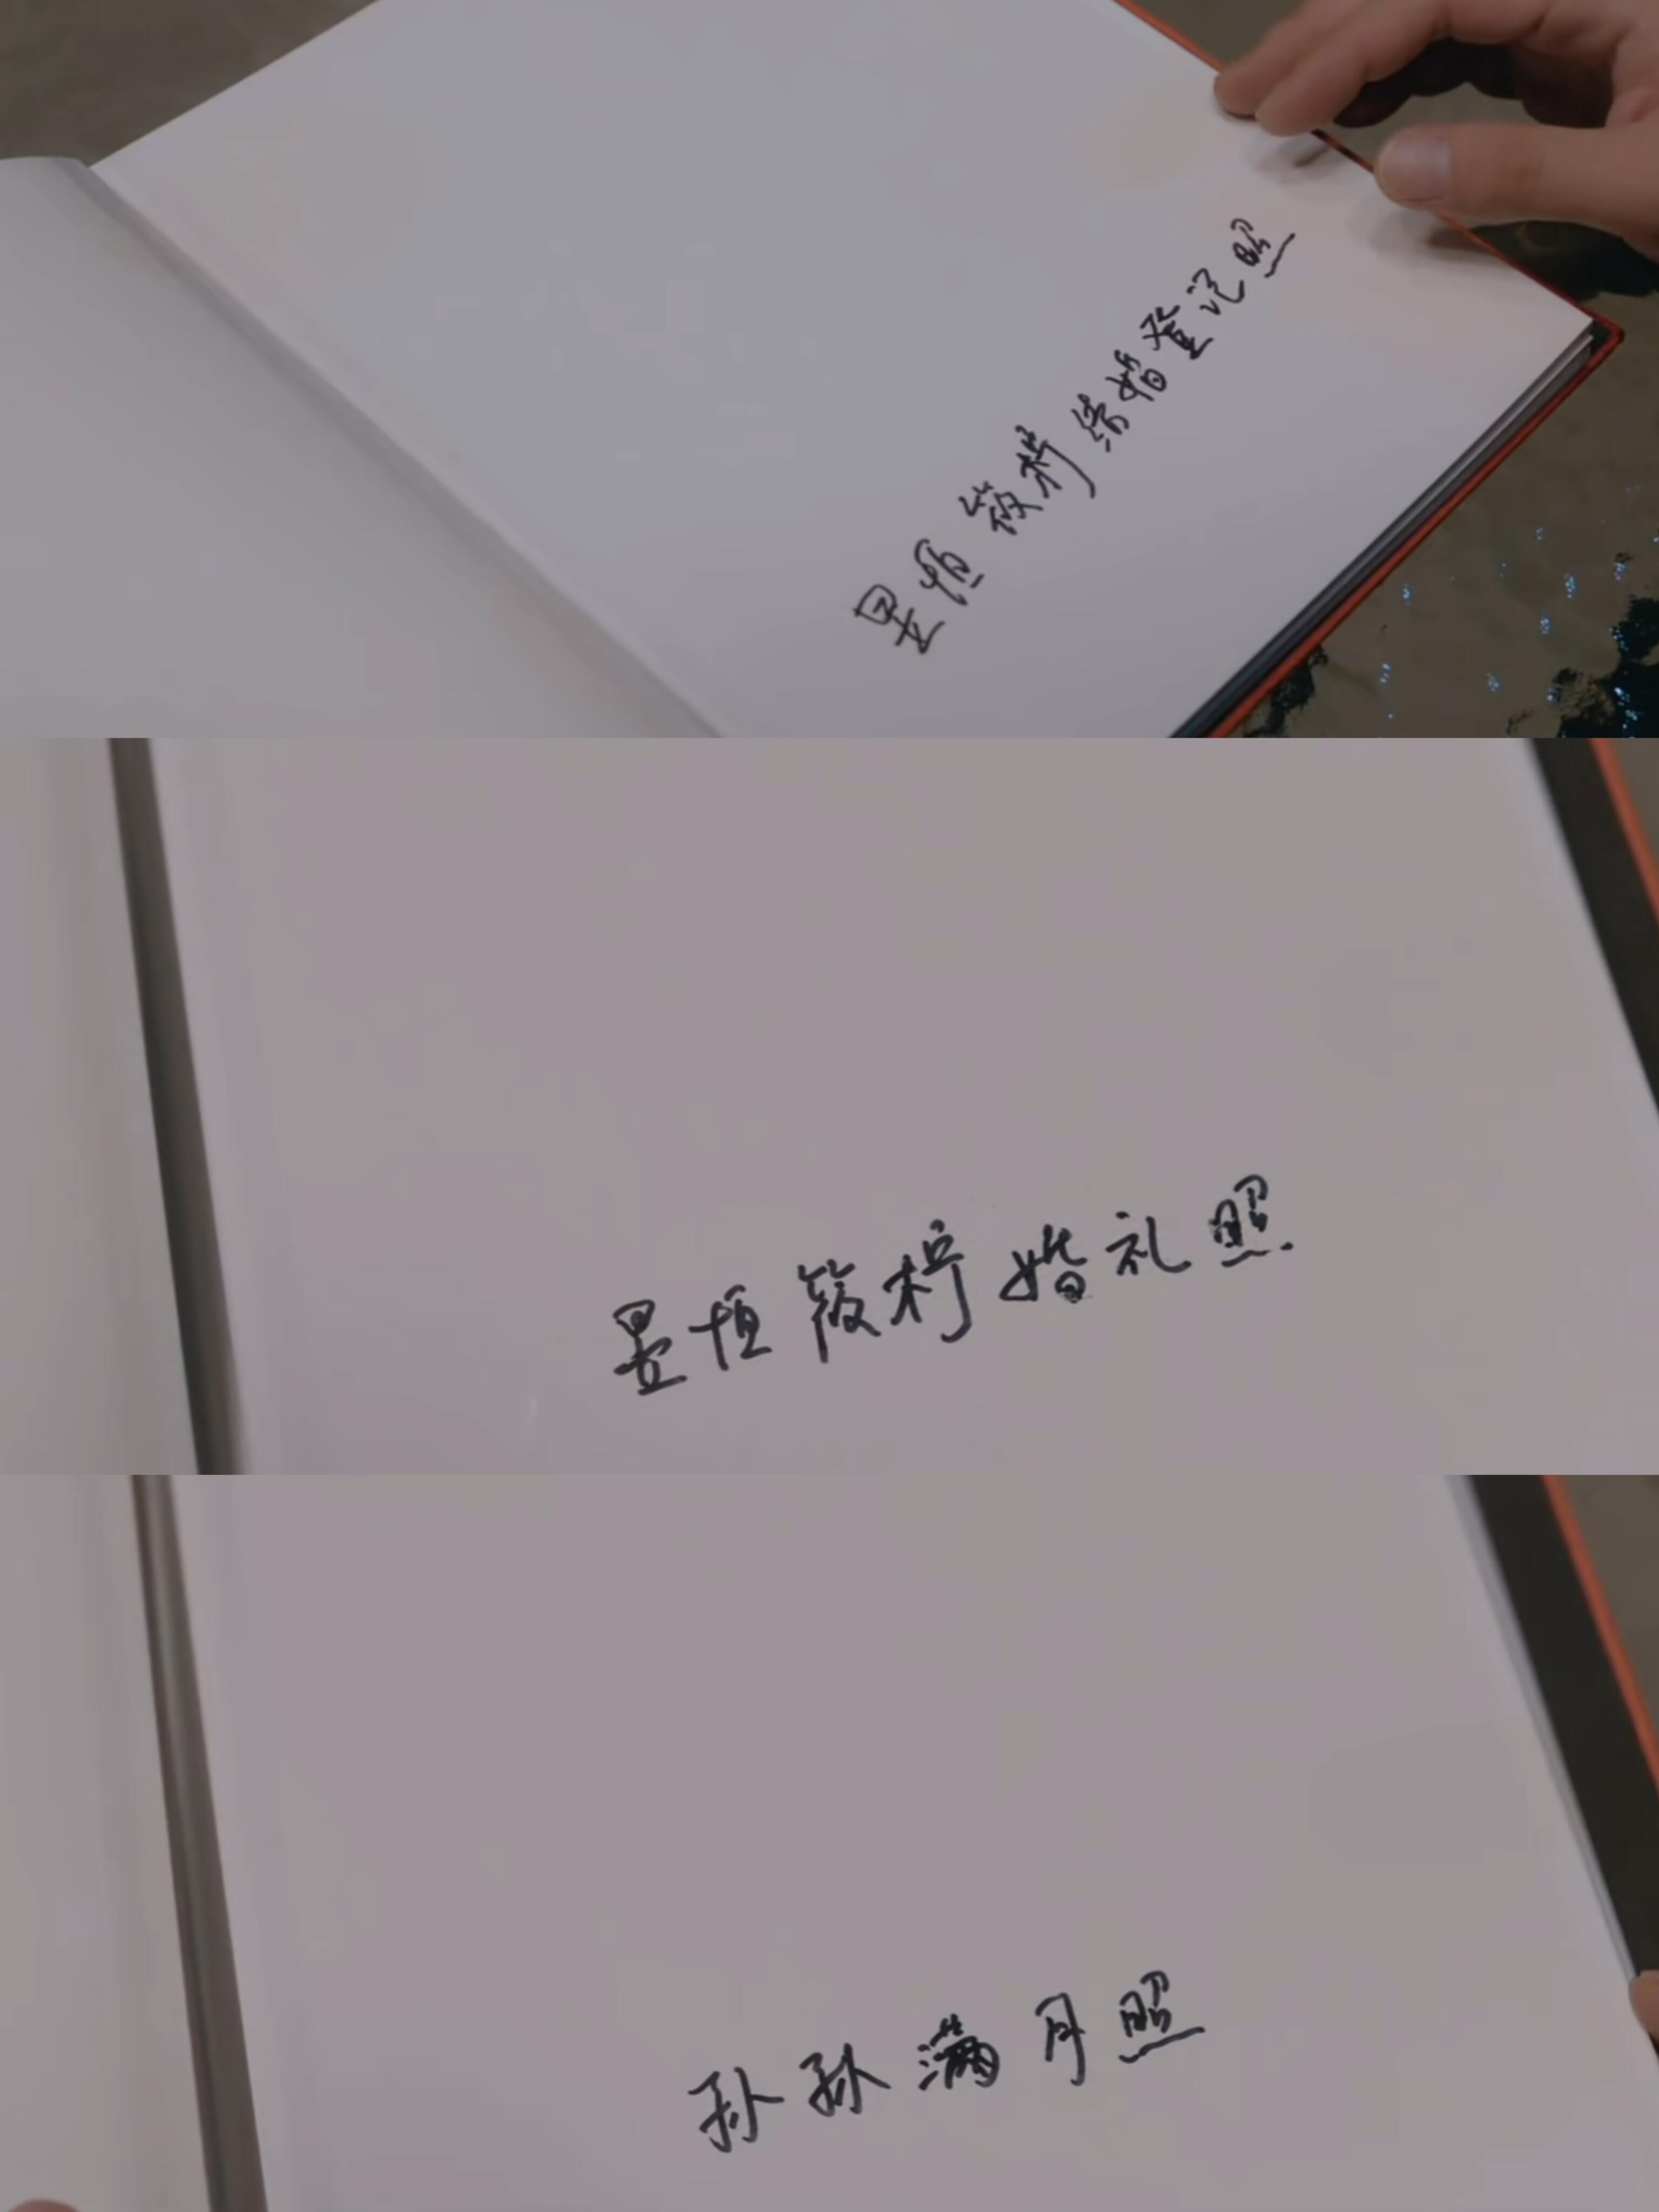 昱恒筱柠结婚登记照
昱恒筱柠婚礼照
孙孙满月照